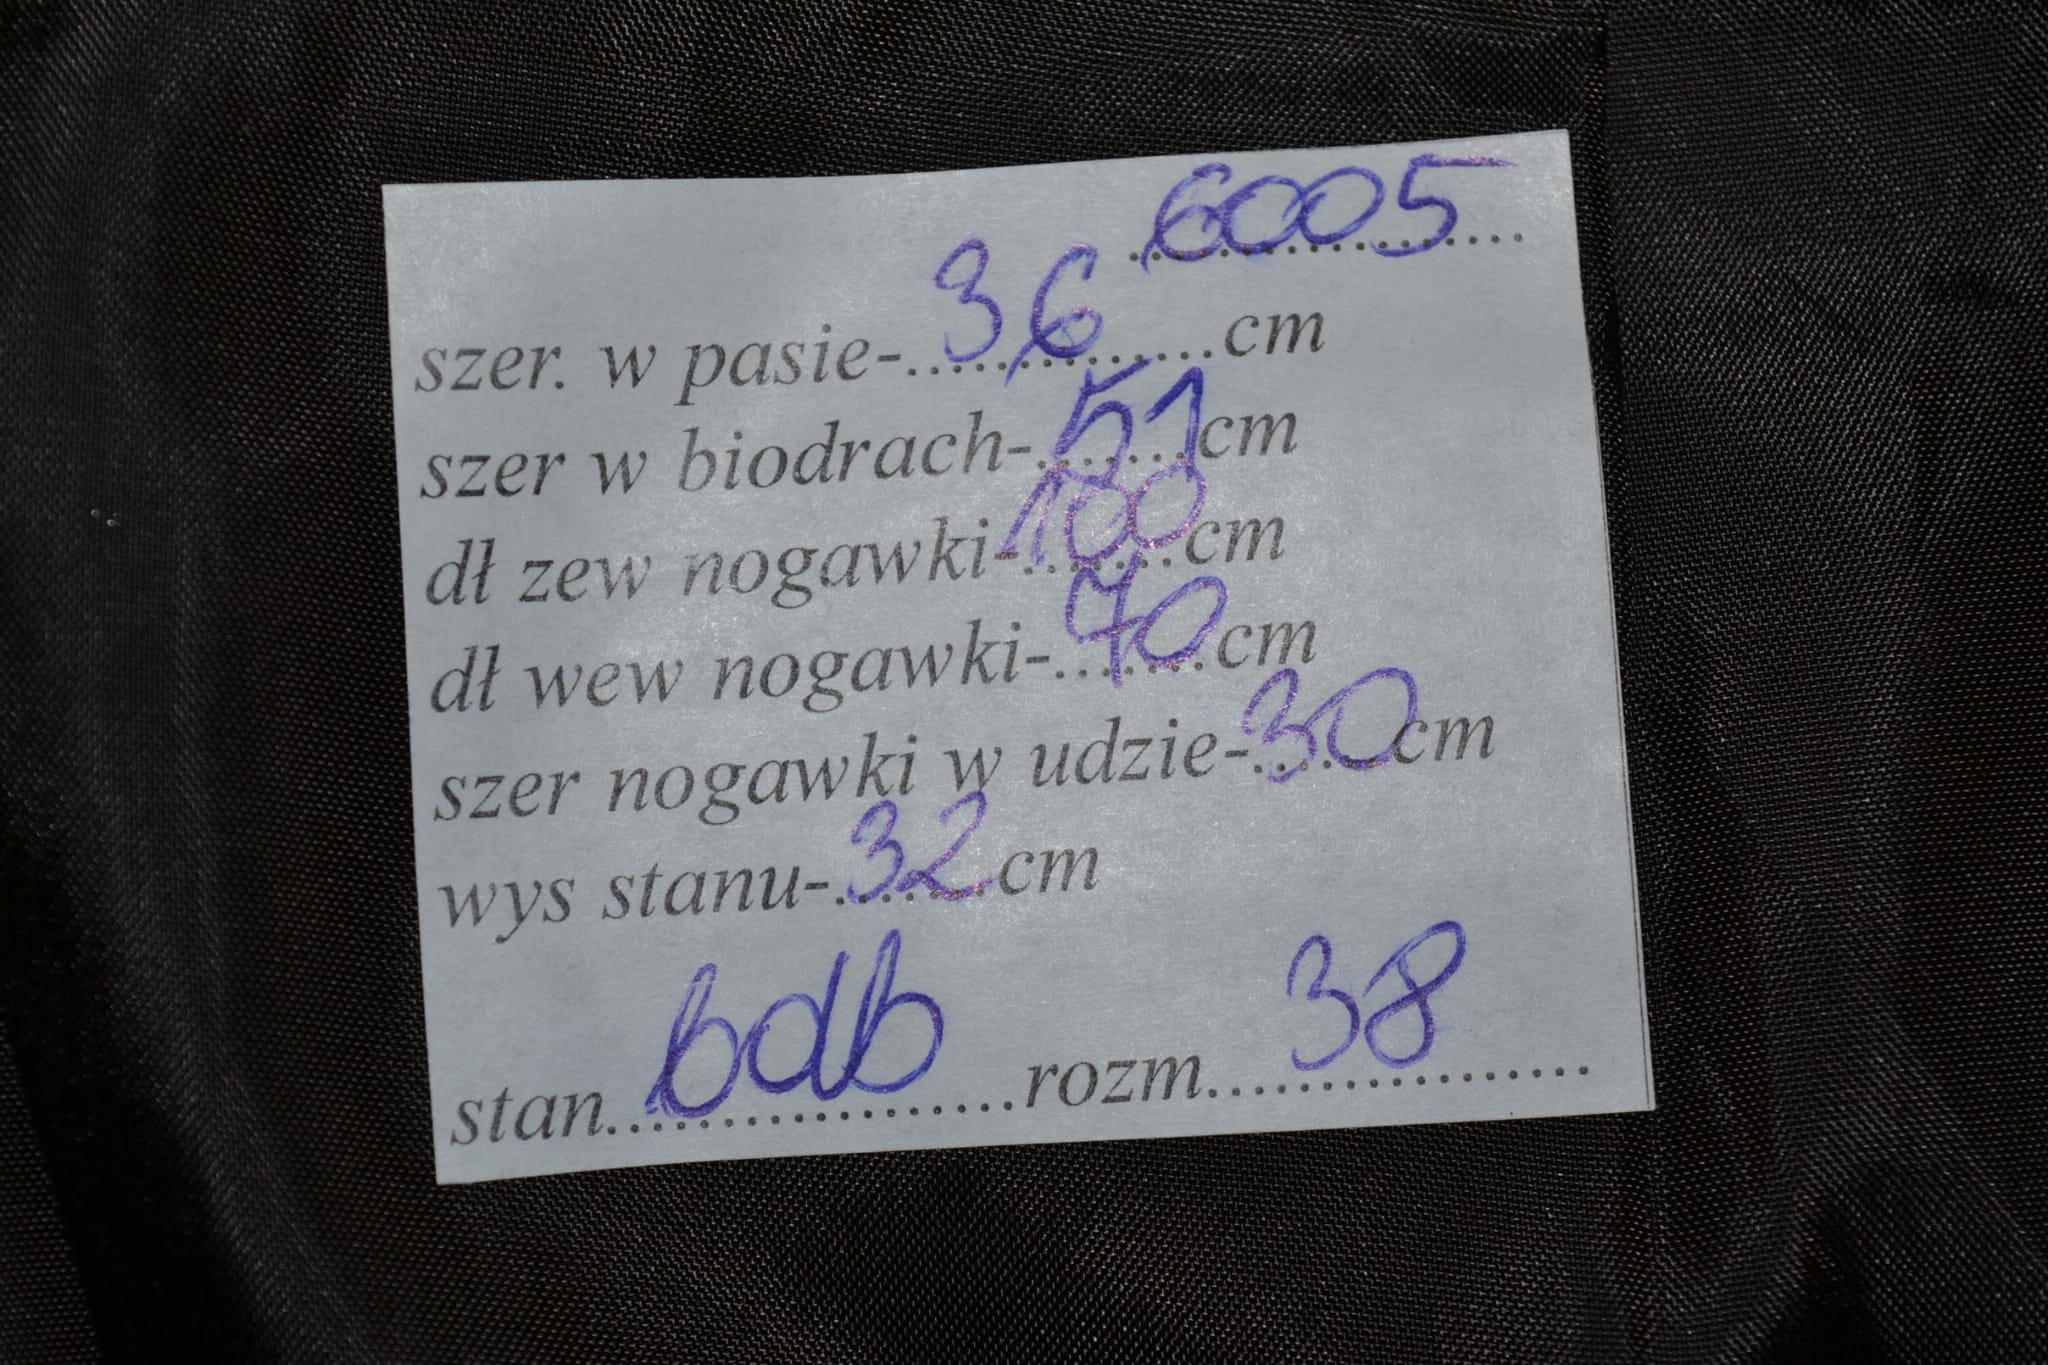 6005
szer. w pasie-36cm
szer w biodrach-51cm
dł zew nogawki-100cm
dł wew nogawki-70cm
szer nogawki w udzie-30cm
wys stanu-32cm
stan bdb rozm 38